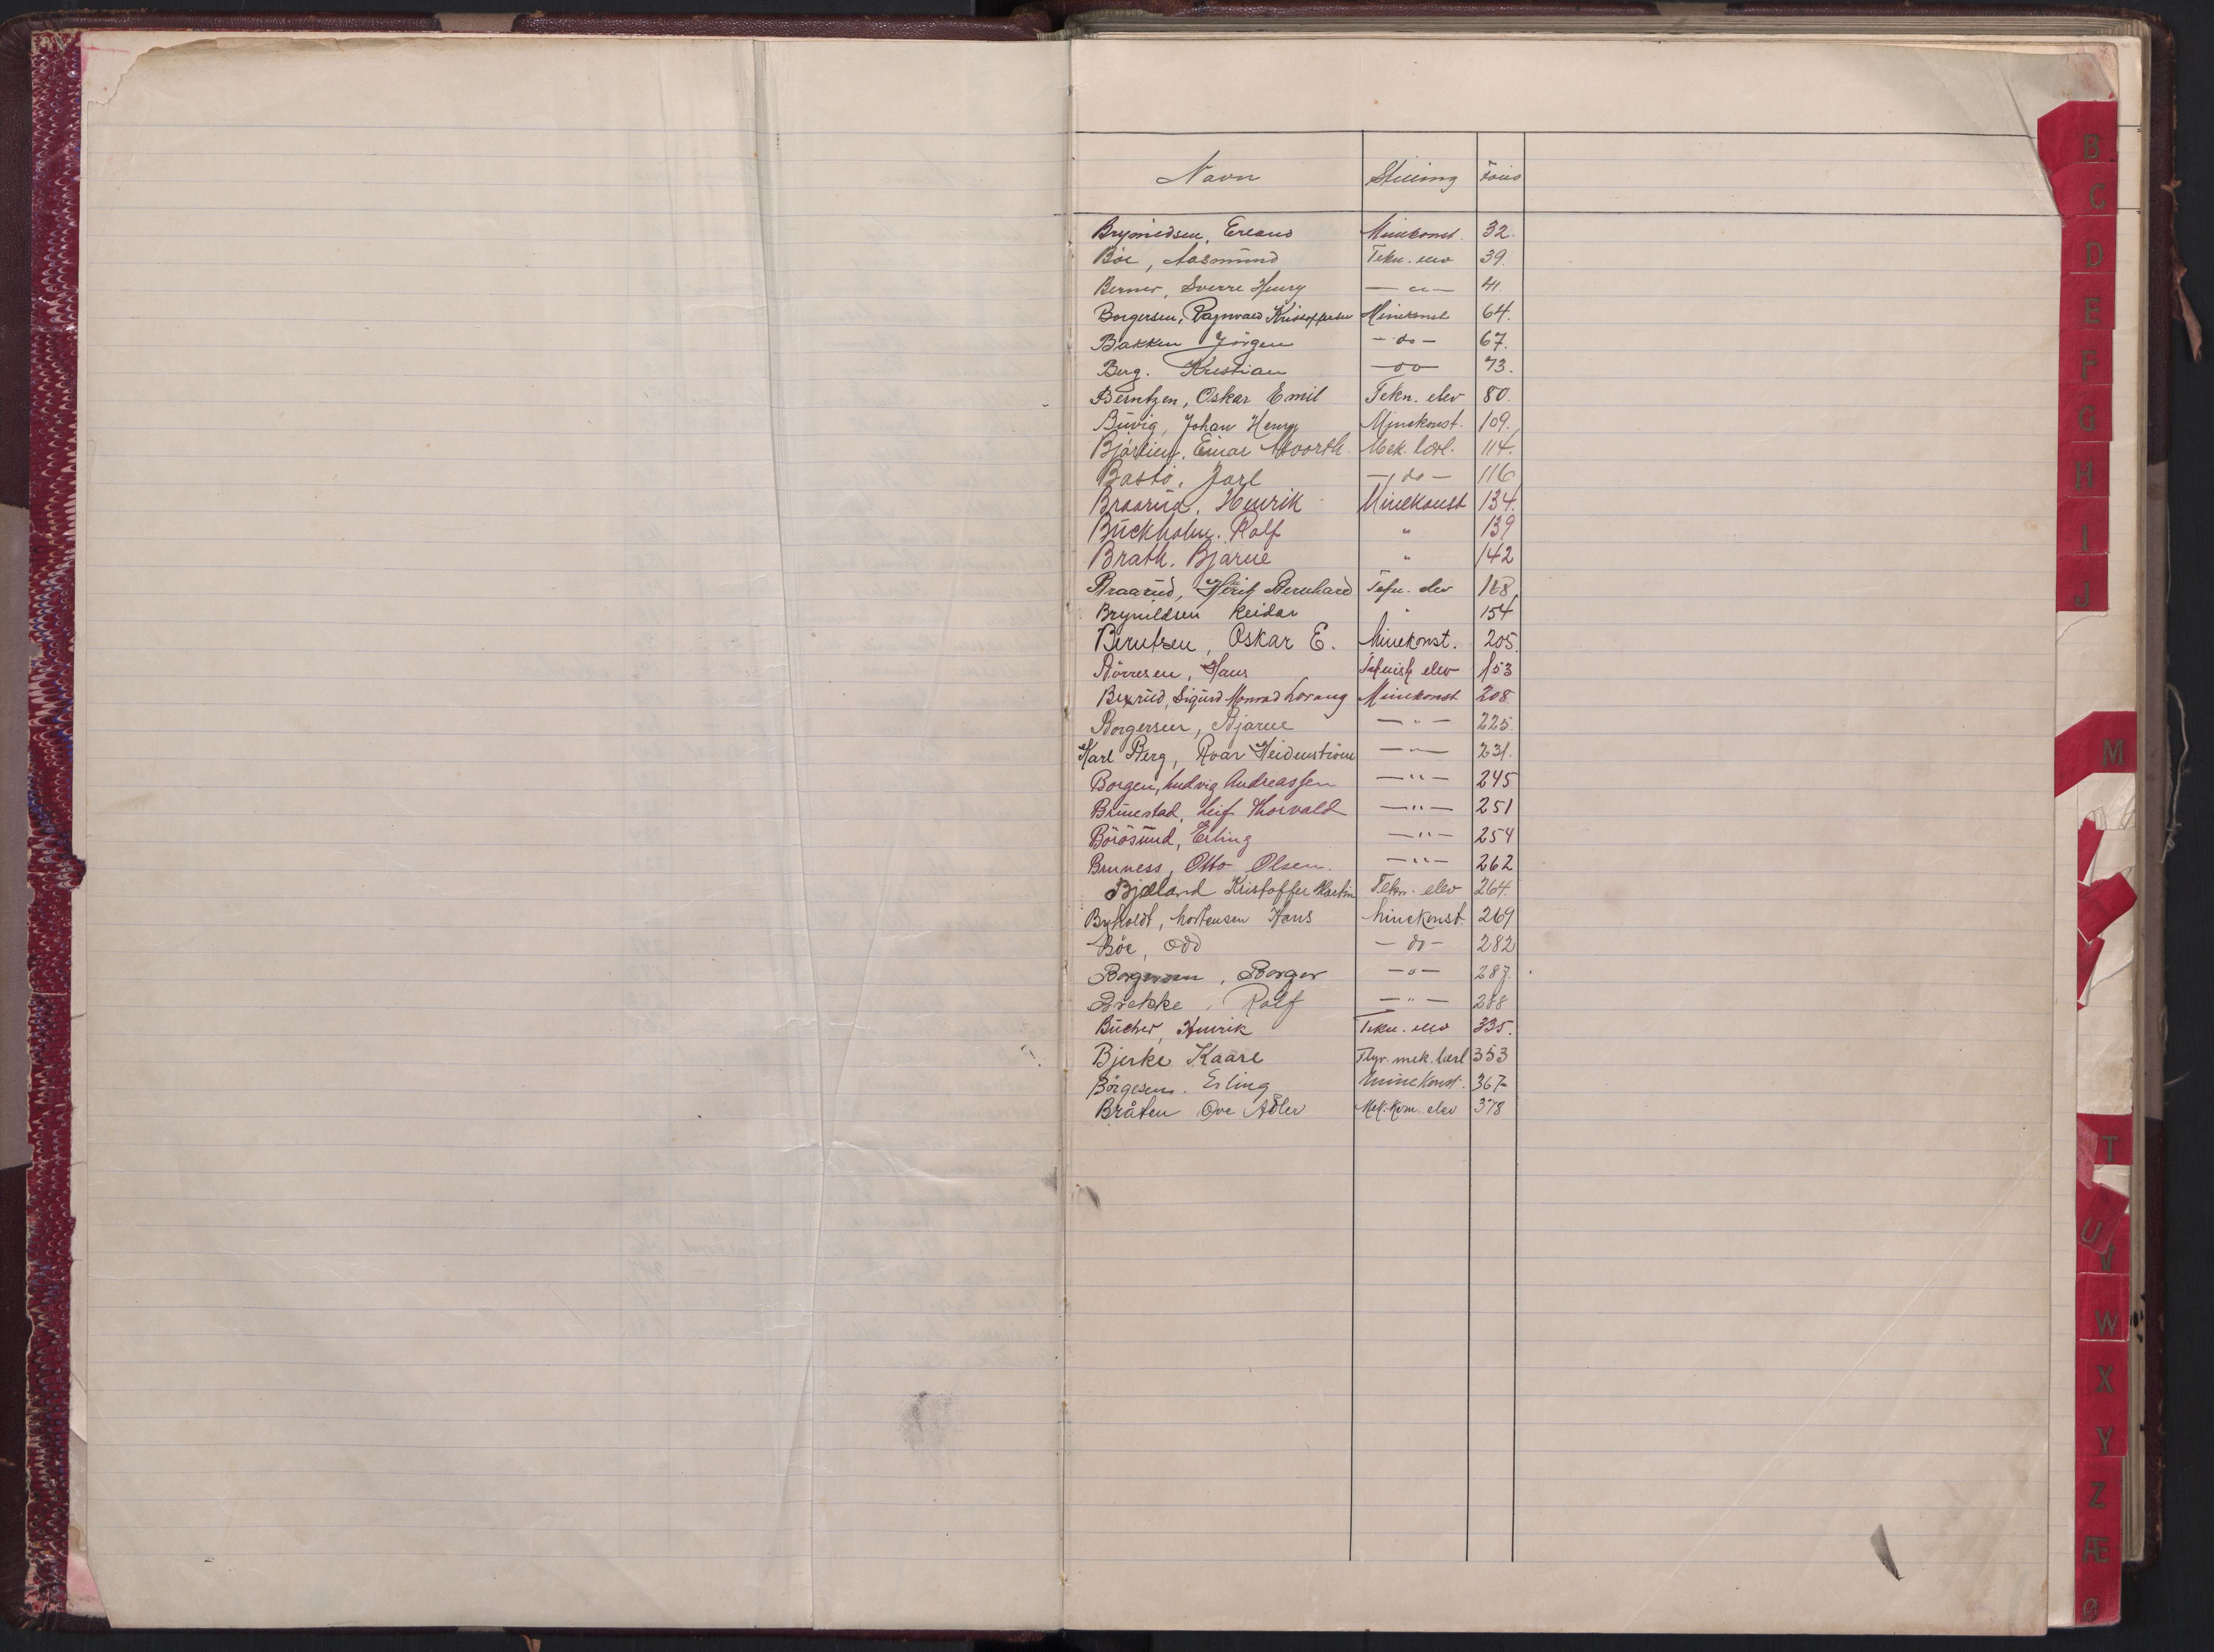 Navn Stilling Folio
Brynildsen, Erland Minekonst. 32.
Bøe, Aasmund Tekn. elev 39.
Berner, Sverre Henry — " — 41.
Borgersen, Ragnvald Kristoffersen Minekonst 64.
Bakken Jörgen — do — 67.
Berg. Kristian — do — 73.
Berntzen, Oskar Emil Tekn. elev 80.
Buvig, Johan Henry Minekonst. 109.
Einar Mek. lærl. 114.
Bastö, Jarl — do — 116
Braarud, Henrik Minekonst 134.
Buckholm. Rolf " 139
Brath. Bjarne " 142
Braarud, Bernhard Tekn. elev
Brynildsen Reidar " 154
Berntsen, Oskar E. Minekonst. 205.
Börresen, Hans Teknisk elev 153
Bexrud, Sigurd Monrad Lorang Minekonst 208
Borgersen, Bjarne — " — 225.
Karl Berg, Roar Heidenström — " — 231.
Borgen, Ludvig Andreassen — " — 245
Brunestad, Leif Thorvald — " — 251
Börösund, Erling — " — 254
Bruness, Otto Olsen. — " — 262
Bjæland Kristoffer Martin Tekn. elev 264.
Byholdt, Mortensen Hans Minekonst. 269
Böe, Odd — do — 282
Borgersen, Borger — " — 287.
Brekke, Rolf — " — 288
Bücher, Henrik Tekn. elev 335.
Bjerke Kaare Flyv. mek. lærl 353
Börgesen. Erling Minekonst. 367
Bråten Ove Adler Mek. kom. elev 378
B
C
D
E
F
G
H
I
J
M
T
U
V
W
X
Y
Z
Æ
Ø